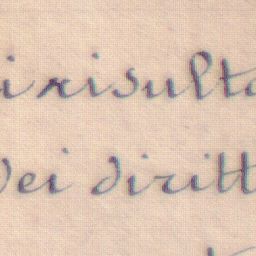 i risulta
dei diritt